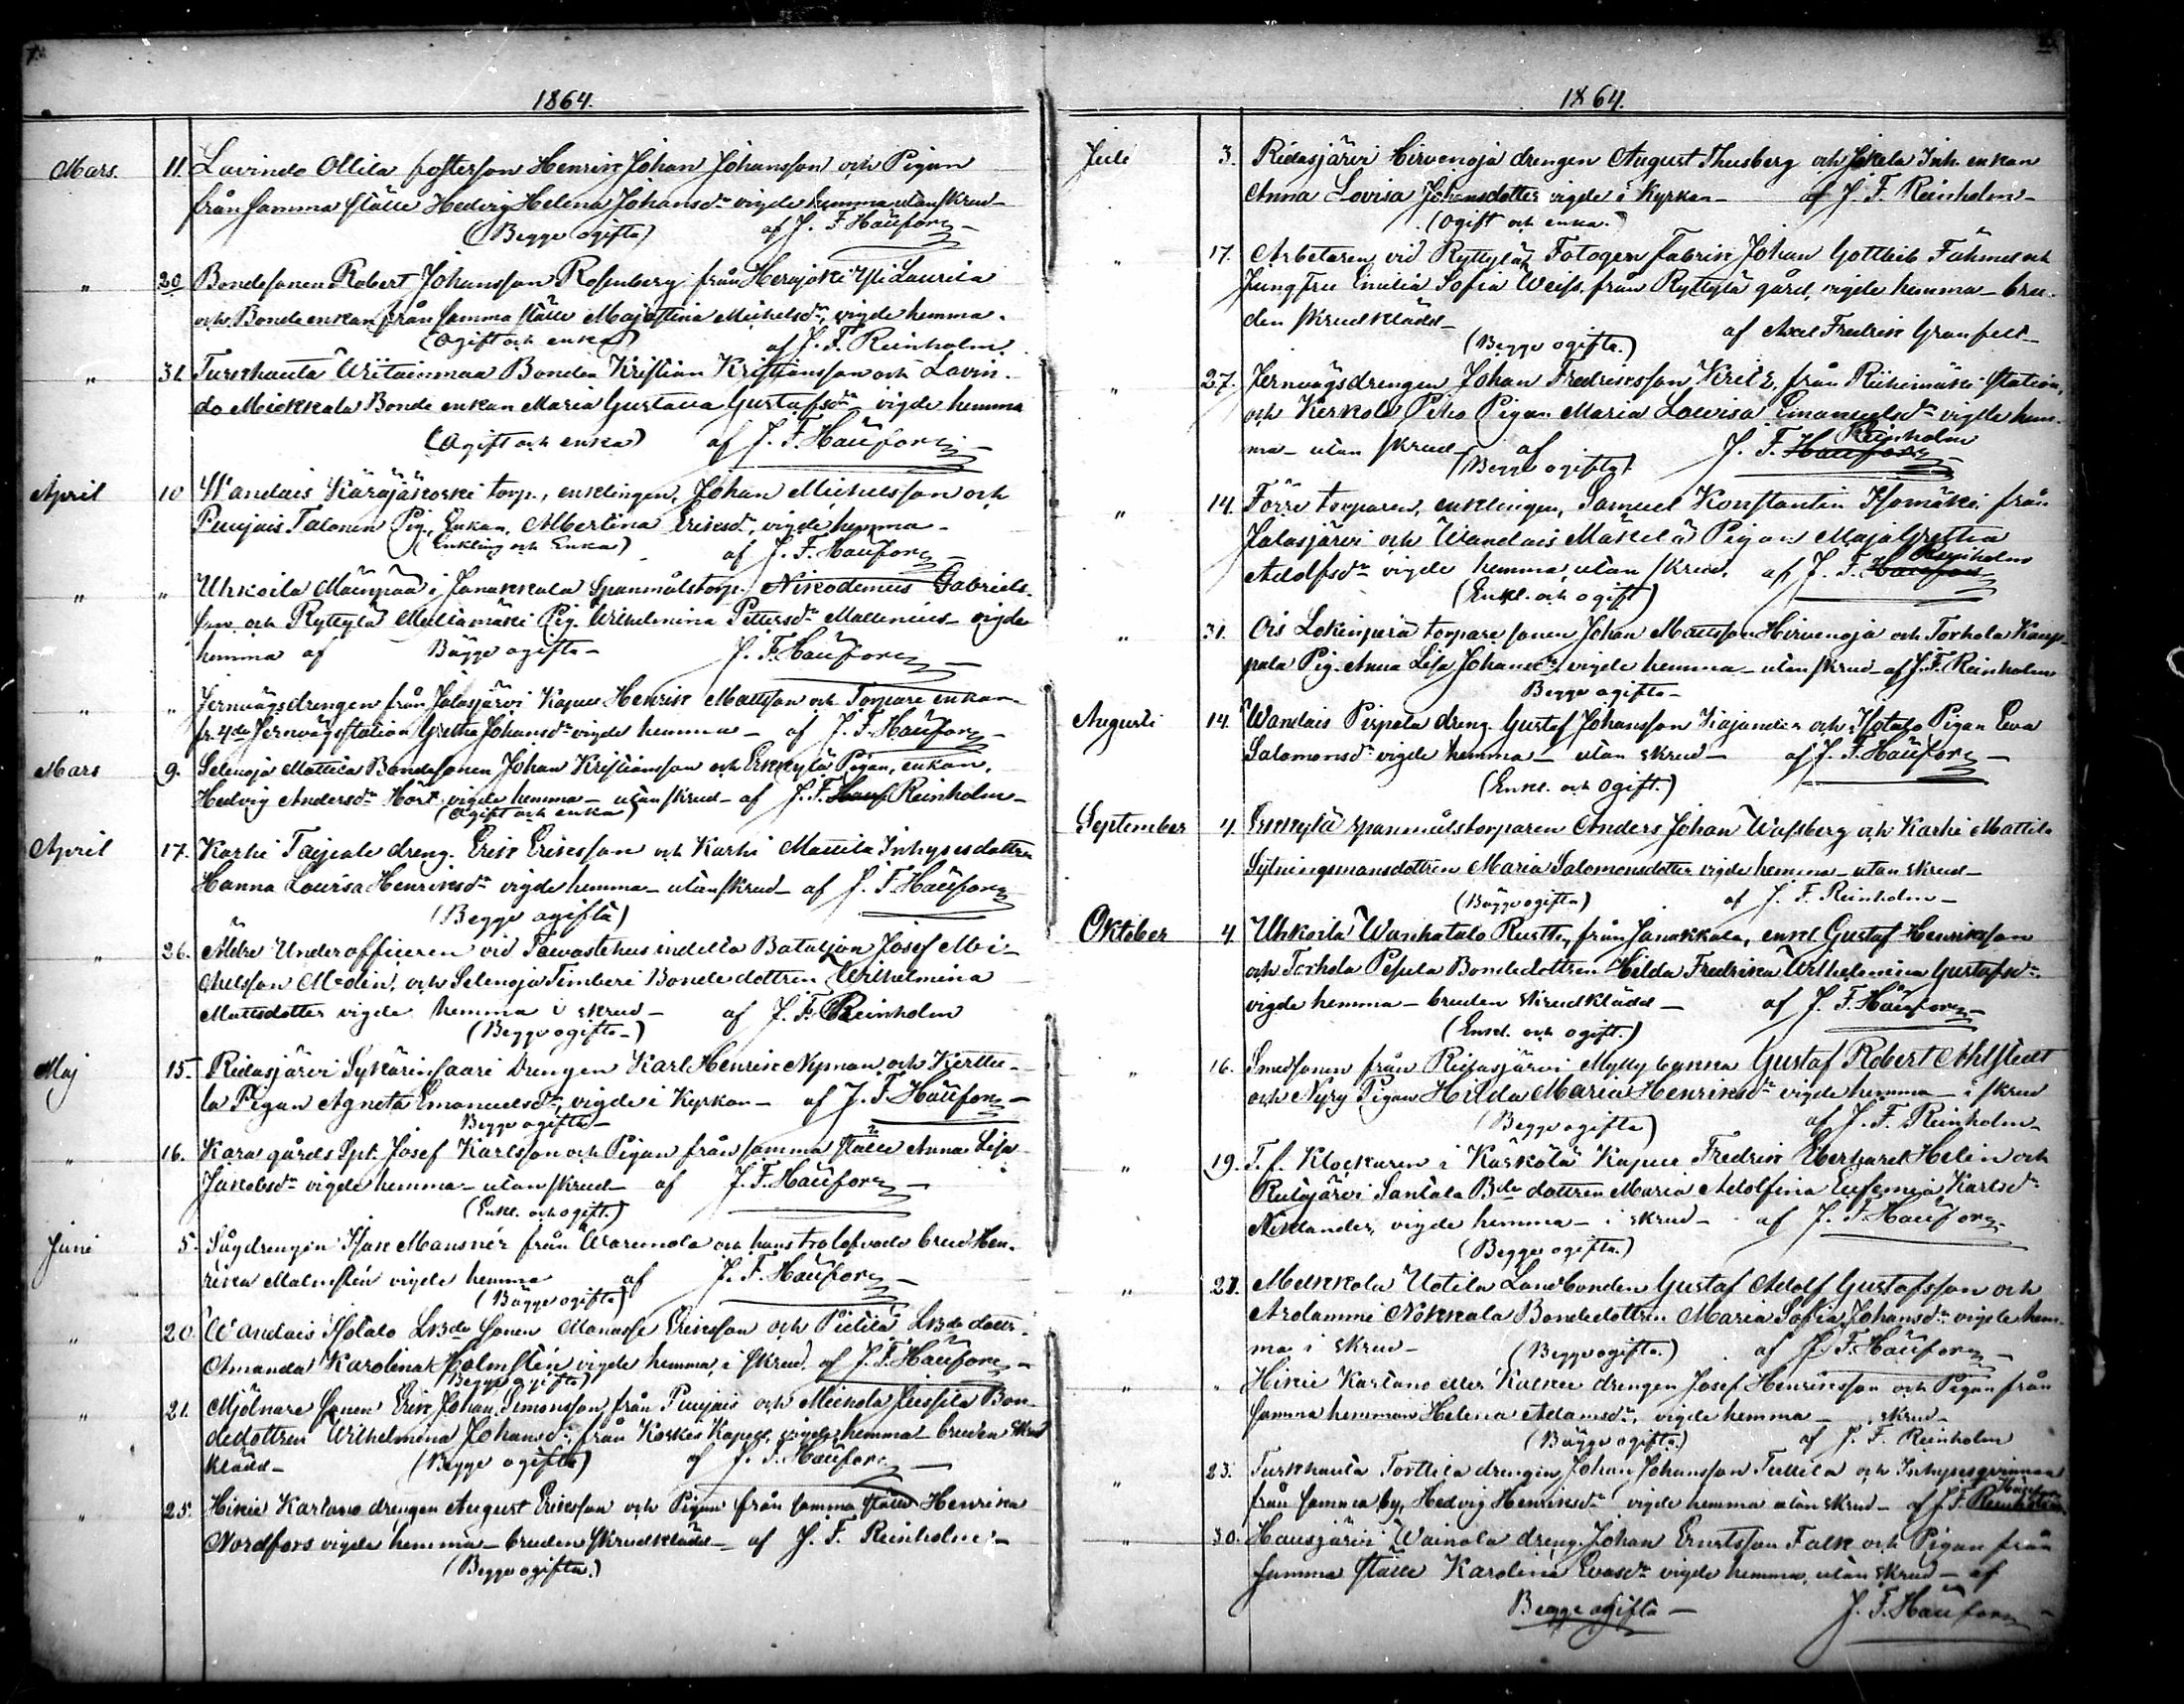 1864.
Mars. 11. Lavindo Ollila fosterson Henrik Johan Johansson och Pigan
från samma ställe Hedvig Helena Johansdr vigde hemma utan skrud
(Begge ogifta) af J. F. Haüfors
" 20 Bondesonen Robert Johansson Rosenberg från Herajoki Yli Laurila
och Bondeenkan från samma ställe Maja Stina Michelsdr, vigde hemma.
(Ogift och enka) af J. F. Reinholm.
" 31. Turkhauta Uitainmaa Bonden Kristian Kristiansson och Lavin-
do Miekkala Bonde enkan Maria Gustava Gustafsdr vigde hemma
(Ogift och enka) af J. F. Haüfors
April 10 Wandais Käräjäkoski torp., enklingen, Johan Michelsson och
Punjais Talonen Pig. Enkan, Albertina Eriksdr, vigde hemma
(Enkling och Enka) af J. F. Haüfors
" " Uhkoila Mäenpää i Janakkala Spanmålstorp. Nikodemus Gabriels-
son och Ryttylä Myllämäki Pig. Wilhelmina Pettersdr Mallenius vigde
hemma af Bägge ogifta J. F. Haüfors
" " Jernvägsdrengen från Jalasjärvi Kapell Henrik Mattsson och Torpare enkan
fr. 4de Jernvägsstation Gretha Johansdr vigde hemma af J. F. Haüfors
Mars 9. Selenoja Mattila Bondesonen Johan Kristiansson och Erkkylä Pigan, enkan,
Hedvig Andersdr Hört vigde hemma utan skrud af J. F. Hauf Reinholm
(Ogift och enka)
April 17. Karhi Taipale dreng. Erik Eriksson och Karhi Mattila Inhysesdottren
Hanna Lovisa Henriksdr vigde hemma utan skrud af J. F. Haüfors
(Begge ogifta)
" 26. Äldre Underofficeren vid Tawastehus indelta Bataljon Josef Mi-
chelsson Modin, och Selenoja Timberi Bondedottren Wilhelmina
Mattsdotter vigde hemma i skrud af J. F. Reinholm
(Begge ogifta)
Maj 15. Ridasjärvi Sykärinsaari Drengen Karl Henrik Nyman och Kerttu-
la Pigan Agneta Emanuelsdr, vigde i Kyrkan af J. F. Haüfors
Begge ogifta
" 16. Kara gårds Spt. Josef Karlsson och Pigan från samma ställe Anna Lisa
Jakobsdr vigde hemma utan skrud af J. F. Haüfors
(Enkl. och ogift.)
Juni 5. Sågdrengen Isak Mansnér från Warunola och hans trolofvade brud Hen-
rika Malmstén vigde hemma af J. F. Haüfors
(Bägge ogifta)
" 20. Wandais Isotalo Lbde sonen Manasse Eriksson och Pietilä Lbde dottr.
Amanda Karolina Holmstén vigde hemma i skrud. af J. F. Haüfors
(Begge ogifta)
" 21. Mjölnare sonen Erik Johan Simonsson från Punjais och Mickola Jussila Bon-
dedottren Wilhelmina Johansdr, från Koskis Kapell, vigde hemma bruden skrud
klädd (Begge ogifta) af J. F. Haüfors
" 25. Hikiä Kartano drengen August Eriksson och Pigan från samma ställe Henrika
Nordfors vigde hemma bruden skrudklädd af J. F. Reinholm
(Begge ogifta.)
1864.
Juli 3. Ridasjärvi Hirvenoja drengen August Thusberg och Jokela Inh. enkan
Anna Lovisa Johansdotter vigde i Kyrkan af J. F. Reinholm
(Ogift och enka.)
" 17. Arbetaren vid Ryttylä Fotogen Fabrik Johan Gottlieb Fähmel och
Jungfru Emilia Sofia Weiss, från Ryttylä gård, vigde hemma bru-
den skrudklädd af Axel Fredrik Granfelt
(Begge ogifta.)
" 27. Jernvägsdrengen Johan Fredriksson Kriiz, från Riihimäki Station,
och Kerkola Pitko Pigan Maria Lovisa Emanuelsdr vigde hem-
ma utan skrud af J. F. Haüfors Reinholm
(Begge ogifta)
" 14. Förre torparen, enklingen, Samuel Konstantin Isomäki från
Jalasjärvi och Wandais Mäkelä Pigan Maja Gretha
Adolfsdr vigde hemma, utan skrud, af J. F. Haüfors Reinholm
(Enkl. och ogift)
" 31. Ois Lokinperä torpare sonen Johan Mattsson Hirvenoja och Torhola Kamp-
pala Pig. Anna Lisa Johansdr, vigde hemma utan skrud af J. F. Reinholm
Begge ogifta
Augusti 14. Wandais Pirpala dreng. Gustaf Johansson Kajander och Isotalo Pigan Eva
Salomonsdr vigde hemma utan skrud af J. F. Haüfors
(Enkl. och Ogift.)
September 4. Erkkylä spanmålstorparen Anders Johan Wassberg och Karhi Mattila
Sytningsmansdottren Maria Salomonsdotter vigde hemma utan skrud
(Bägge ogifta) af J. F. Reinholm
Oktober 4. Uhkoila Wanhatalo Rustth. från Janakkala, enkl. Gustaf Henriksson
och Torhola Pesula Bondedottren Hilda Fredrika Wilhelmina Gustafsdr
vigde hemma bruden skrudklädd af J. F. Haüfors
(Enkl. och ogift.)
" 16. Smedsonen från Ridasjärvi Myllykanna Gustaf Robert Ahlstedt
och Nyry Pigan Hilda Maria Henriksdr vigde hemma i skrud
(Begge ogifta) af J. F. Reinholm
" 19. T. f. Klockaren i Kärkölä Kapell Fredrik Eberhard Helin och
Rutajärvi Santala Bde dottren Maria Adolfina Eufemia Karlsdr
Nislander, vigde hemma i skrud af J. F. Haüfors
(Begge ogifta.)
" 21. Melkkola Uotila Landbonden Gustaf Adolf Gustafsson och
Arolammi Nokkala Bondedottren Maria Sofia Johansdr vigde hem-
ma i skrud (Begge ogifta.) af J. F. Haüfors
" " Hikiä Kartano eller Kalkku drengen Josef Henriksson och Pigan från
samma hemman Helena Adamsdr, vigde hemma skrud
(Bägge ogifta.) af J. F. Reinholm
" 23. Turkhauta Torttila drengen Johan Johansson Tullila och Inhysesqvinnan
från samma by, Hedvig Henriksdr vigde hemma utan skrud af J. F. Reinholm Haüfors
" 30. Hausjärvi Wainola dreng. Johan Ernstsson Falk och Pigan från
samma ställe Karolina Evasdr vigde hemma, utan skrud af
Begge ogifta J. F. Haüfors